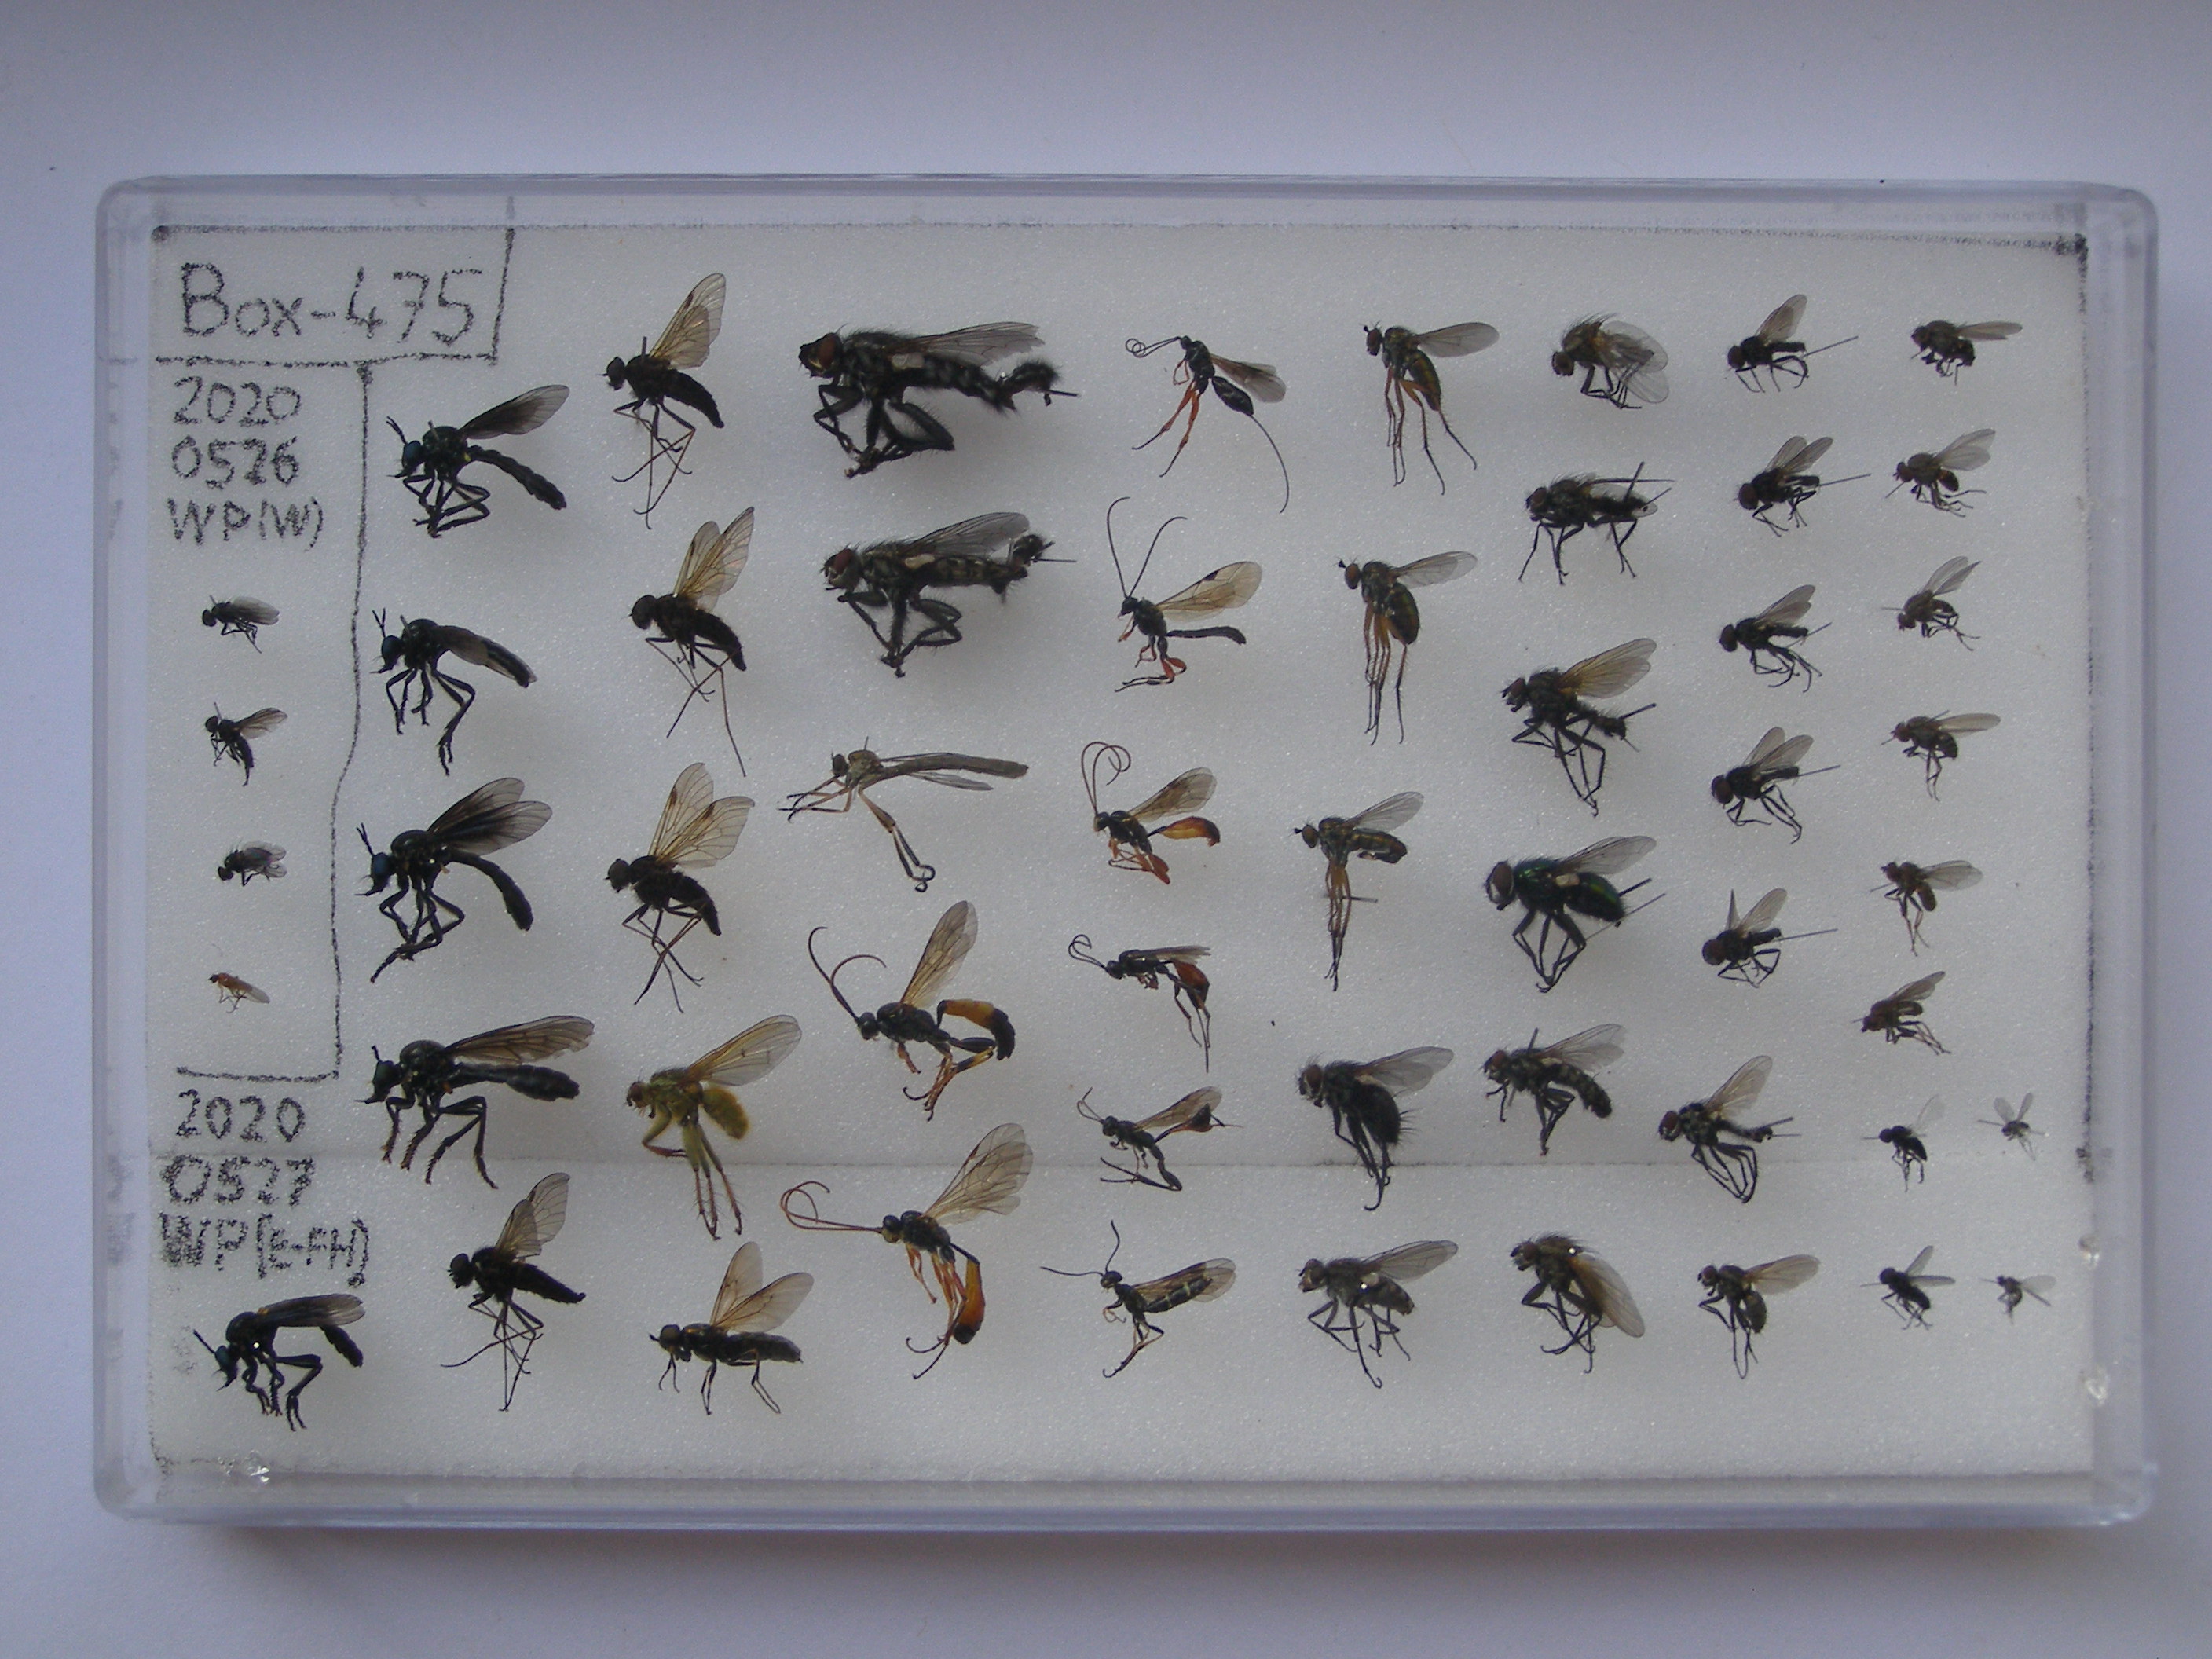 Box-475
2020
0526
WP(W)
2020
0527
WP(E-FH)